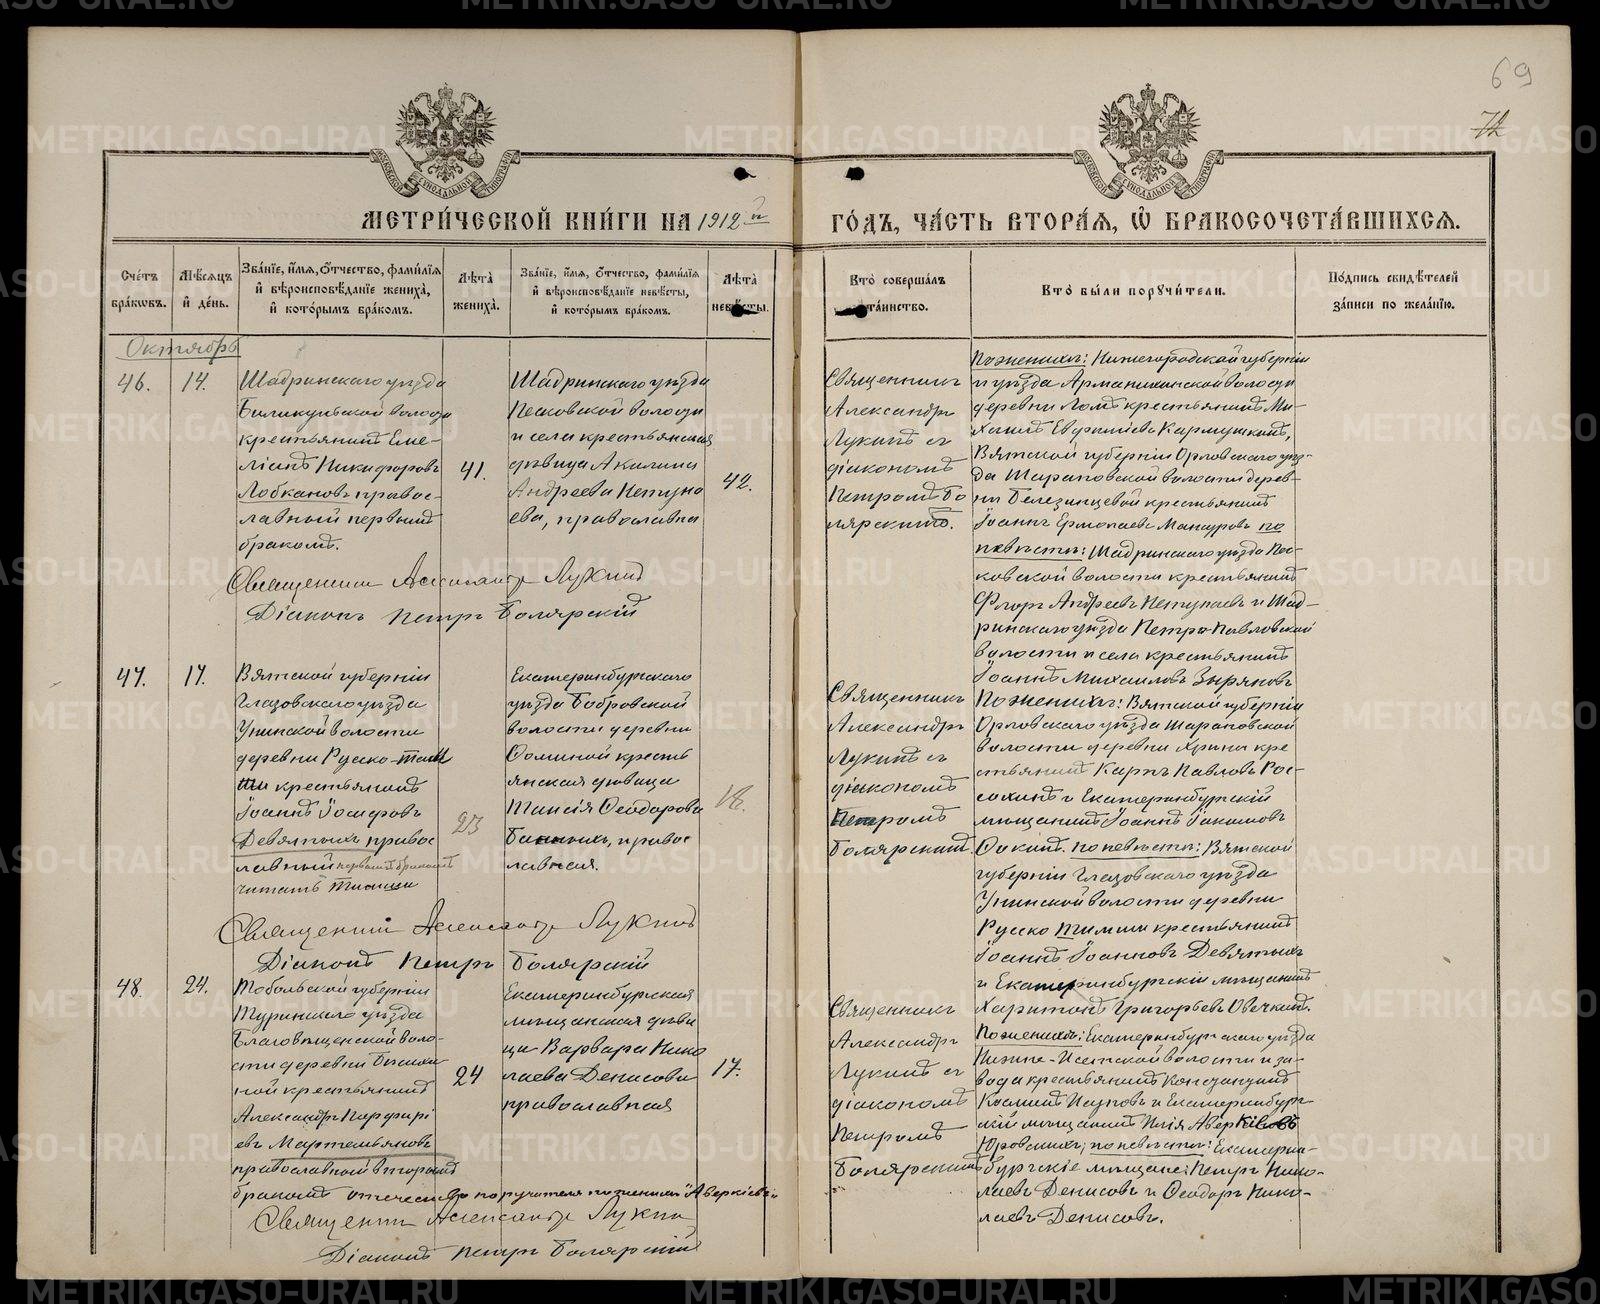 69
72
МЕТРИ́ЧЕСКОЙ КНИ́ГИ НА 1912 й
ГО́ДЪ, ЧА́СТЬ ВТОРА́Я, Ѽ БРАКОСОЧЕТА́ВШИХСЯ.
Сче́тъ бра́ковъ.
Мѣ́сяцъ и҆ де́нь.
Зва́нїе, и҆́мя, ѻ҆́тчество, фами́лїя и҆ вѣроисповѣ́данїе жениха̀, и҆ кото́рымъ бра́комъ.
Лѣ́та жениха̀.
Зва́нїе, и҆́мя, ѻ҆́тчество, фами́лїя и҆ вѣроисповѣ́данїе невѣ́сты, и҆ кото́рымъ бра́комъ.
Лѣ́та невѣ́сты.
Кто̀ соверша́лъ та́инство.
Кто̀ бы́ли порꙋчи́тели.
По́дпись свидѣ́телей за́писи по жела́нїю.
Октябрь
46.
14.
Шадринскаго уѣзда
волости
крестьянинъ Еме-
ліанъ Никифоровъ
Лобкановъ правос-
лавный первымъ
бракомъ.
41.
Шадринскаго уѣзда
Песковской волости
и села крестьянская
дѣвица Акилина
Андреева Петуно
ева, православна
42.
Священникъ
Александръ
Лукинъ съ
діакономъ
Петромъ Бо
лярскимъ.
По женихѣ: Нижегородской губерніи
и уѣзда Арманихинской волости
деревни Ломъ крестьянинъ Ми-
хаилъ Евфиміевъ Кармушкинъ,
Вятской губерніи Орловскаго уѣз-
да Шарановской волости дерев-
ни крестьянинъ
Іоаннъ Ермолаевъ Мансуровъ по
невѣстѣ: Шадринскаго уѣзда Пес-
ковской волости крестьянинъ
Флоръ Андреевъ Петунаевъ и Шад-
ринскаго уѣзда Петро-Павловской
волости и села крестьянинъ
Іоаннъ Михаиловъ Зыряновъ
Священникъ Александръ Лукинъ
Діаконъ Петръ Болярскій
47.
17.
Вятской губерніи
Глазовскаго уѣзда
Унинской волости
деревни Русско-
крестьянинъ
Іоаннъ Іосифовъ
Девятыхъ правос
лавный первымъ бракомъ
читать Тимши
23
Екатеринбургскаго
уѣзда Бобровской
волости деревни
Фоминой кресть
янская дѣвица
Таисія Ѳеодорова
правос
лавная.
18.
Священникъ
Александръ
Лукинъ съ
діакономъ
Петромъ
Болярскимъ
По женихѣ: Вятской губерніи
Орловскаго уѣзда Шарановской
волости деревни Хрина кре
стьянинъ Карпъ Павловъ Рос-
сохинъ и Екатеринбургскій
мѣщанинъ Іоаннъ Іакимовъ
Ѳокинъ. по невѣстѣ: Вятской
губерніи Глазовскаго уѣзда
Унинской волости деревни
Русско Тимши крестьянинъ
Іоаннъ Іоанновъ Девятыхъ
и Екатеринбургскій мѣщанинъ
Харитонъ Григорьевъ Овечкинъ.
Священникъ Александръ Лукинъ
Діаконъ Петръ Болярскій
48.
24.
Тобольской губерніи
Туринскаго уѣзда
Благовѣщенской воло-
сти деревни
ной крестьянинъ
Александръ Порфирі
евъ Мартемьяновъ
православный вторымъ
бракомъ отечество поручителя по женихѣ "Аверкіевъ"
24
Екатеринбургская
мѣщанская дѣви
ца Варвара Нико
лаева Денисова
православная
17.
Священникъ
Александръ
Лукинъ съ
діакономъ
Петромъ
Болярскимъ
По женихѣ: Екатеринбургскаго уѣзда
Нижне-Исетской волости и за-
вода крестьянинъ Константинъ
Козминъ Пауновъ и Екатеринбург-
скій мѣщанинъ Илія Аверкіевъ
Юровскихъ; по невѣстѣ: Екатерин-
бургскіе мѣщане: Петръ Нико-
лаевъ Денисовъ и Ѳеодоръ Нико-
лаевъ Денисовъ.
Священникъ Александръ Лукинъ
Діаконъ Петръ Болярскій
METRIKI.GASO-URAL.RU